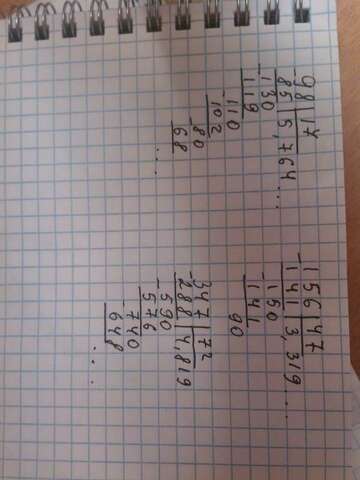 −98|17
85|5,764...
−130
119
−110
102
−80
68
...
−156|47
141|3,319....
−150
141
90
−347|72
288|4,819
−590
576
−740
648
...